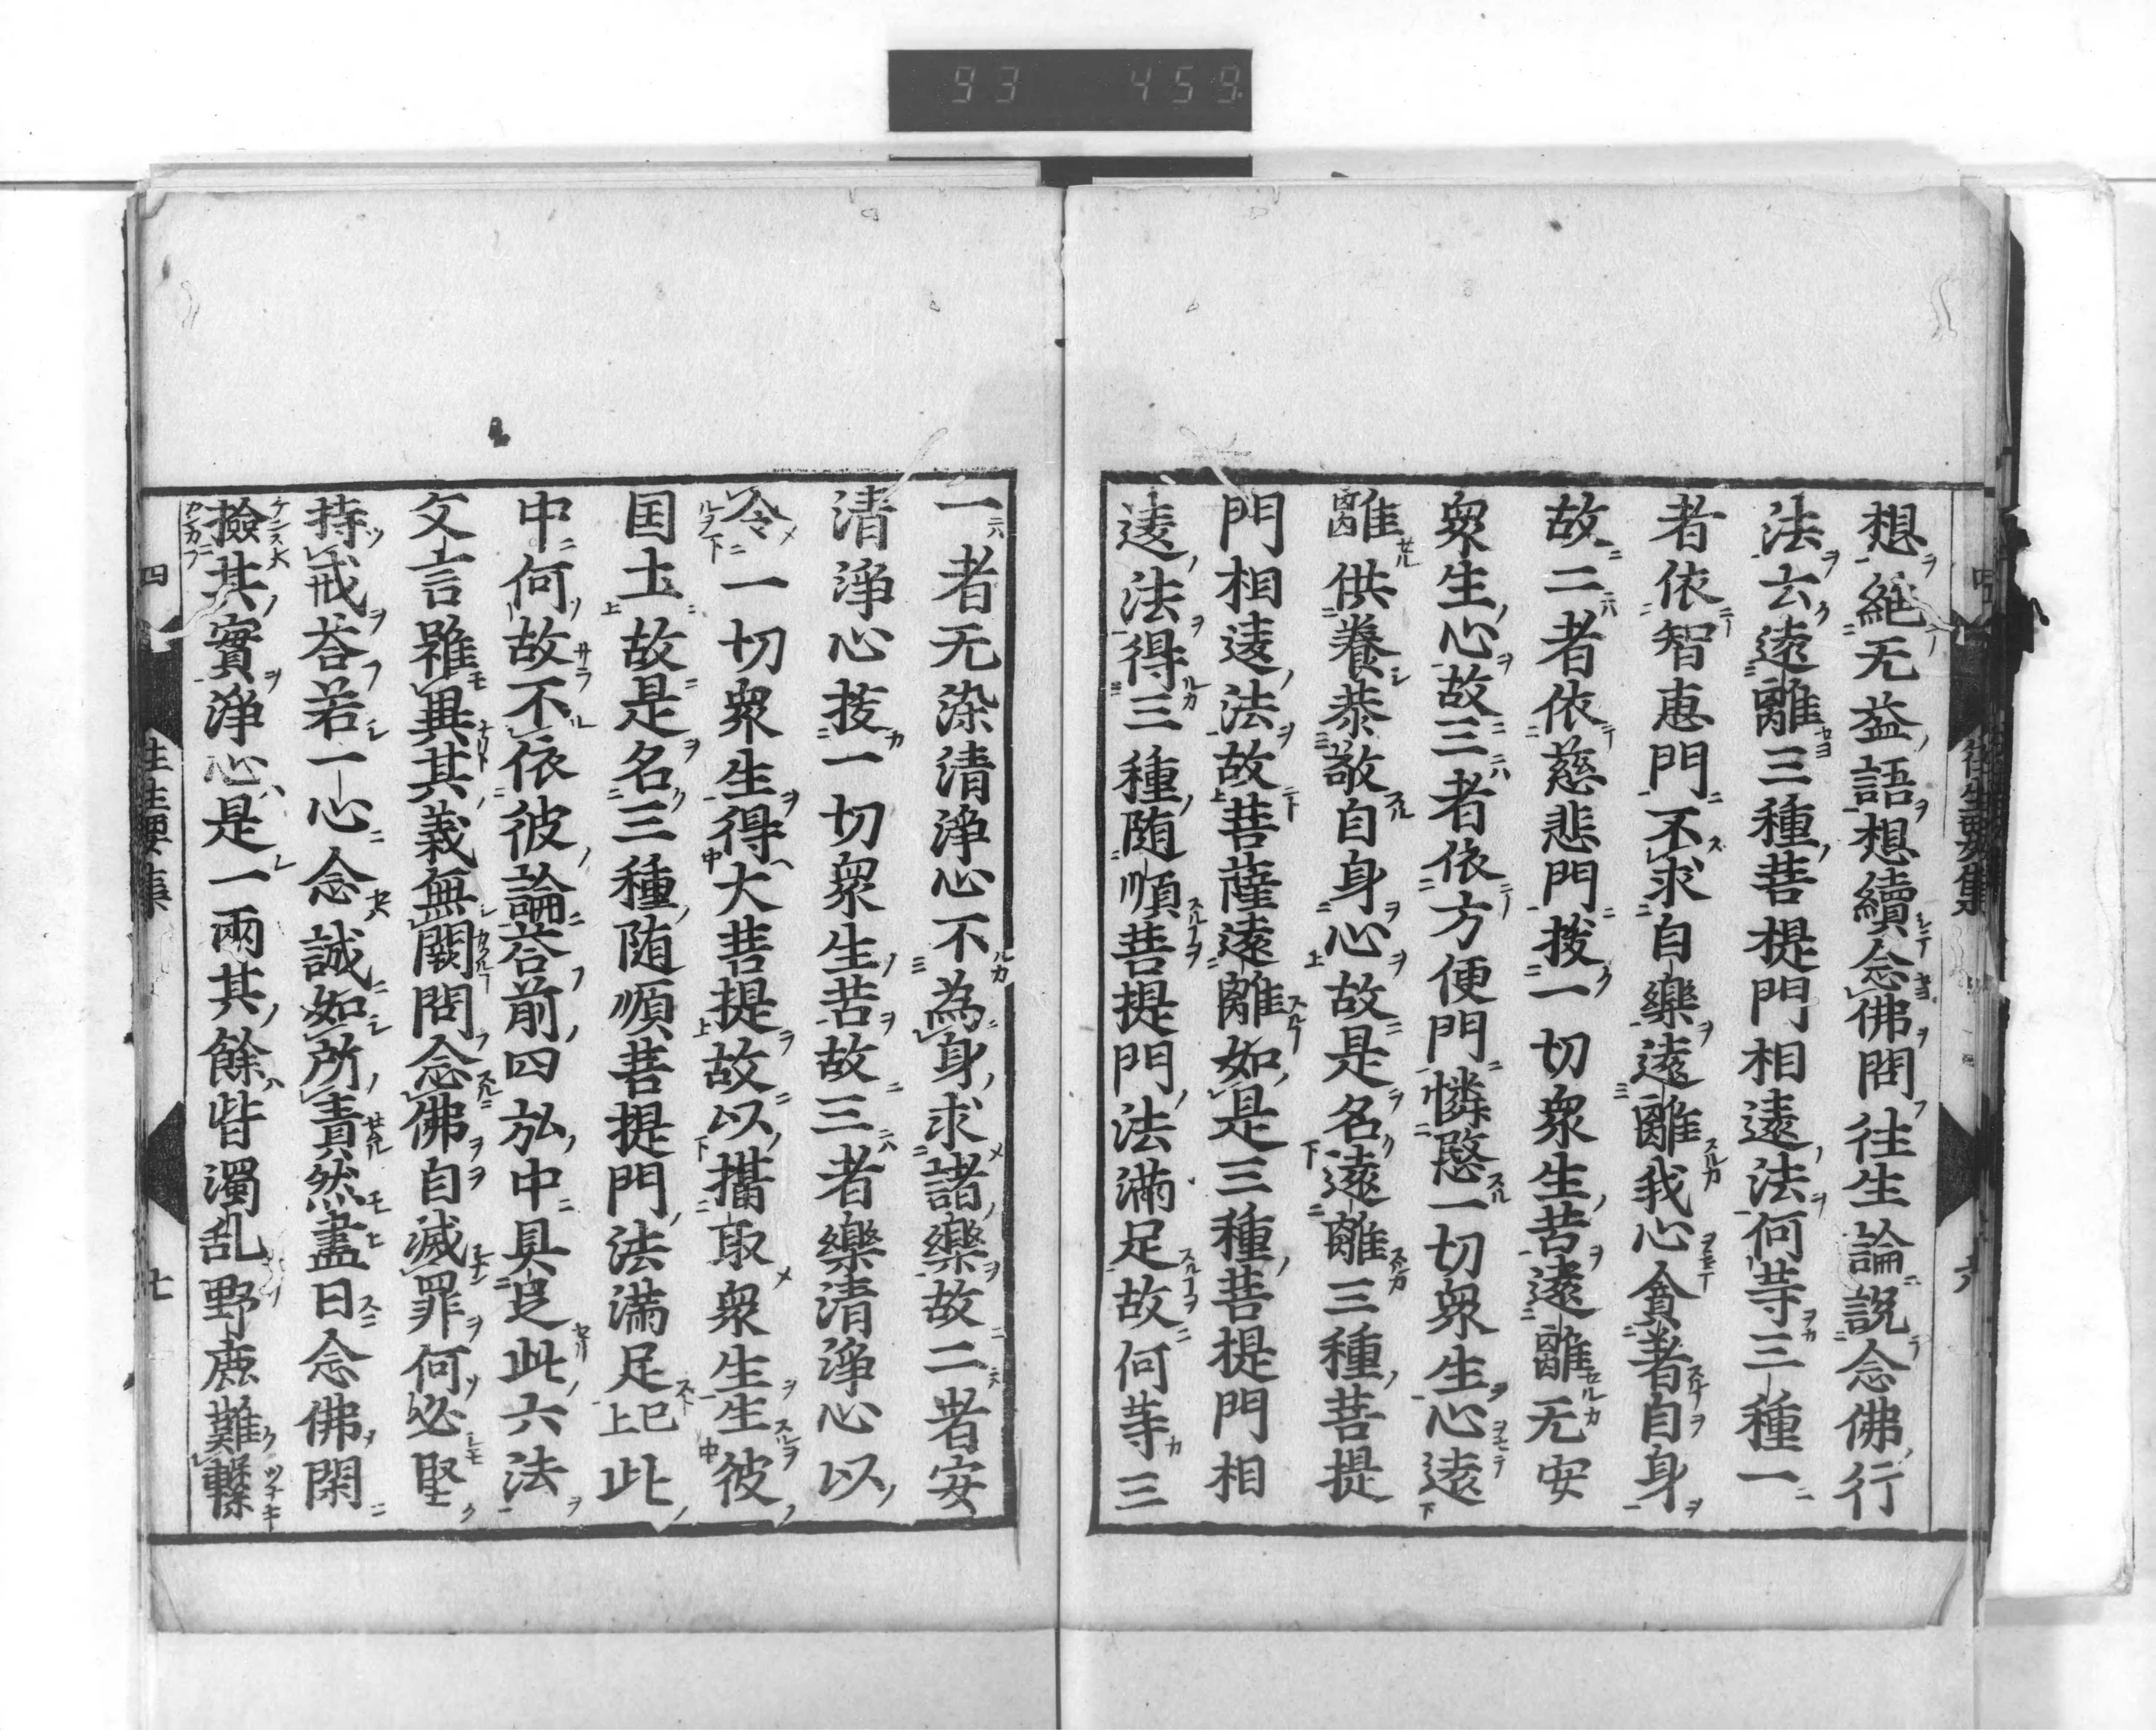 93 459
想絶无益語想續念佛問往生論説念佛行
法云遠離三種菩提門相違法何等三種一
者依智恵門不求自樂遠離我心貪著自身
故二者依慈悲門拔一切衆生苦遠離无安
衆生心故三者依方便門憐愍一切衆生心遠
離供養恭敬自身心故是名遠離三種菩提
門相違法故菩薩遠離如是三種菩提門相
違法得三種随順菩提門法滿足故何等三
一者无染清淨心不為身求諸樂故二者安
清淨心拔一切衆生苦故三者樂清淨心以
令一切衆生得大菩提故以攝取衆生生彼
国土故是名三種随順菩提門法滿足已上此
中何故不依彼論荅前四弘中具足此六法
文言雖異其義無闕問念佛自滅罪何必堅
持戒荅若一心念誠如所責然盡日念佛閑
撿其實淨心是一兩其餘皆濁乱野鹿難繫
四 往生要集 七